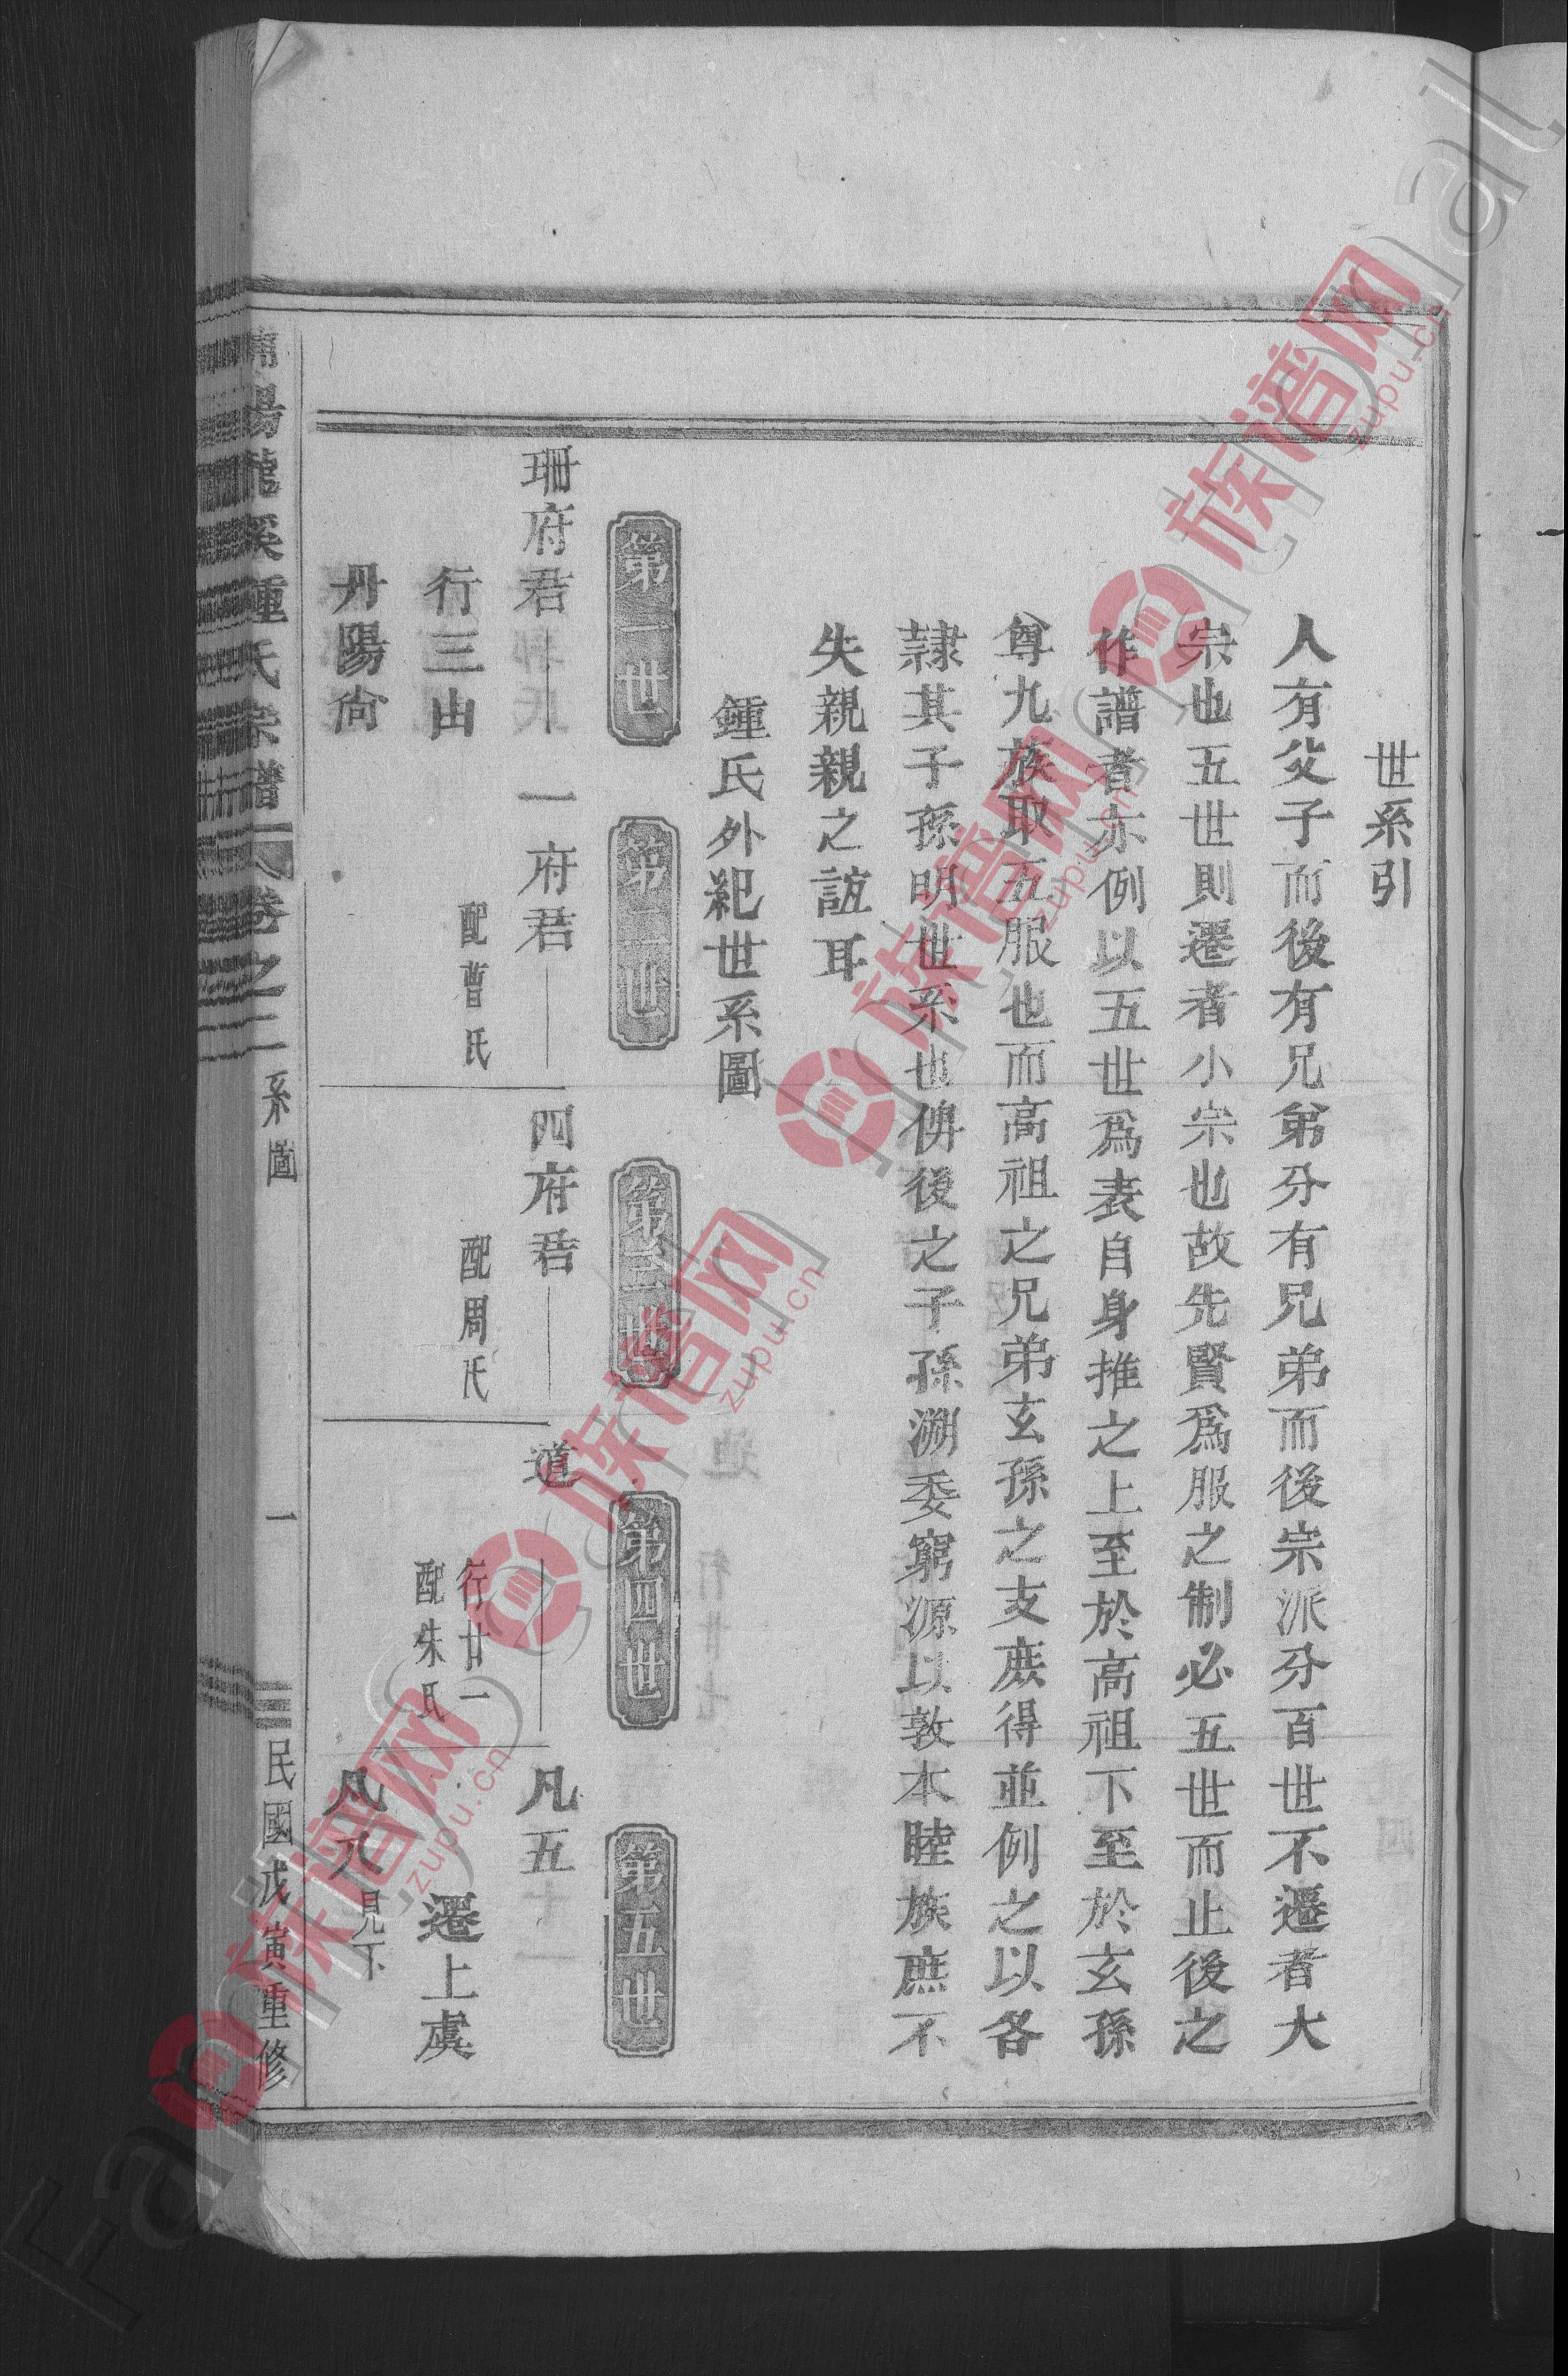 世系引
人有父子而後有兄弟分有兄弟而後宗派分百世不遷者大
宗也五世則遷者小宗也故先賢爲服之制必五世而止後之
作譜者亦例以五世爲表自身推之上至於高祖下至於玄孫
尊九族取五服也而高祖之兄弟玄孫之支庶得並例之以各
隷其子孫明世系也俾後之子孫溯委窮源以敦本睦族庶不
失親親之誼耳
鍾氏外紀世系圖
第一世
第二世
第三世
第四世
第五世
珊府君
一府君
四府君
道
凡五
行三由
配曹氏
配周氏
行廿一
配朱氏
遷上虞
丹陽尙
凡八見下
陽龍溪鍾氏宗譜
卷之二
系圖
一
民國戊寅重修
族谱网
zupu.cn
族谱网
zupu.cn
族谱网
zupu.cn
族谱网
zupu.cn